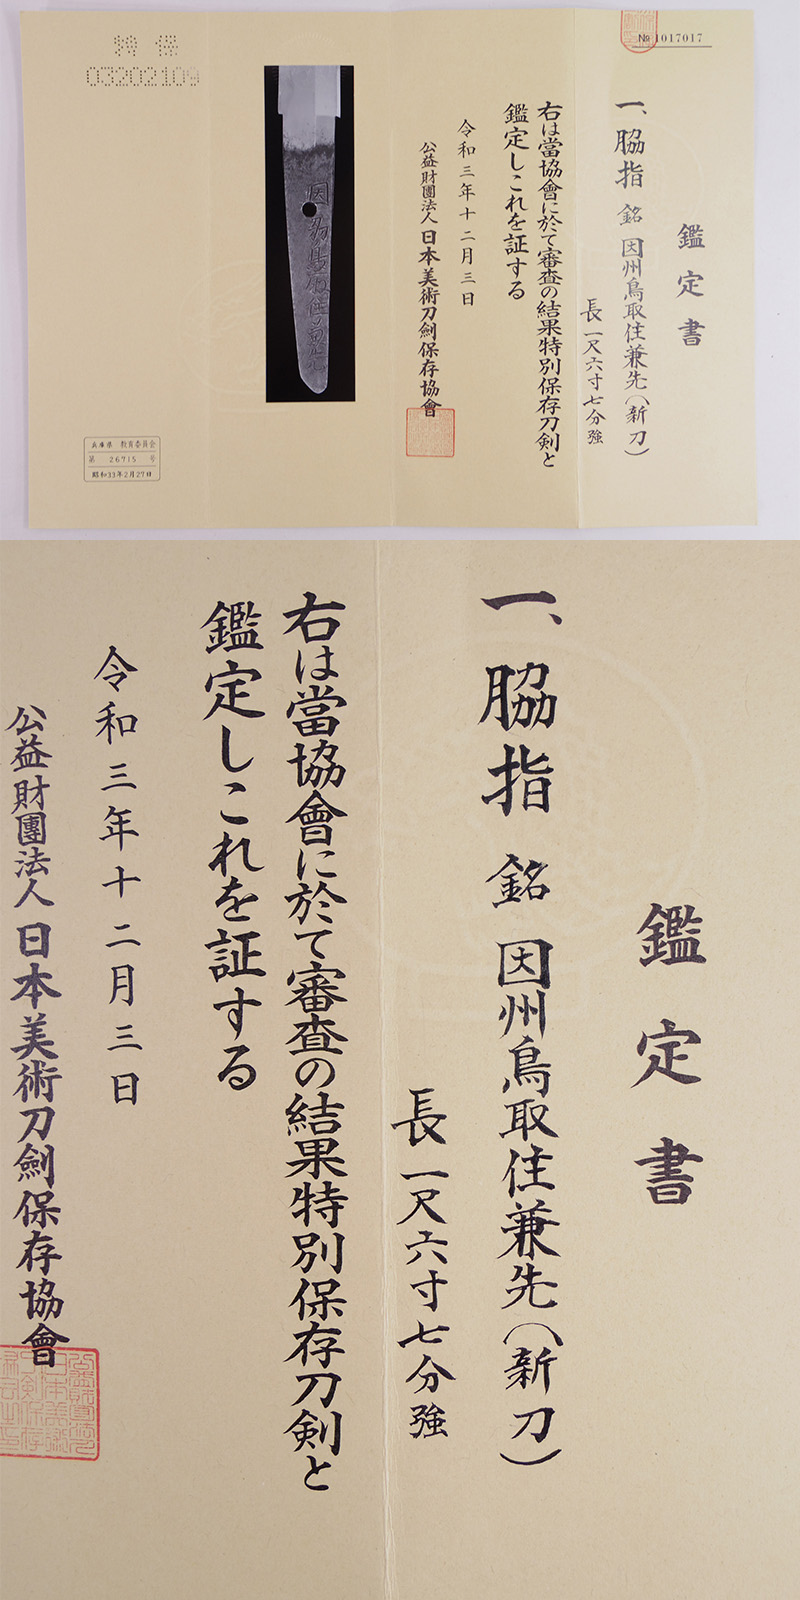 № 1017017
鑑定書
一、脇指 銘 因州鳥取住兼先(新刀)
長一尺六寸七分強
右は當協會に於て審査の結果特別保存刀剣と
鑑定しこれを証する
令和三年十二月三日
公益財團法人日本美術刀劍保存協會
因州鳥取住兼先
特保
03202109
兵庫県 教育委員会
第 26715 号
昭和33年2月27日
鑑定書
一、脇指 銘 因州鳥取住兼先(新刀)
長一尺六寸七分強
右は當協會に於て審査の結果特別保存刀剣と
鑑定しこれを証する
令和三年十二月三日
公益財團法人日本美術刀劍保存協會